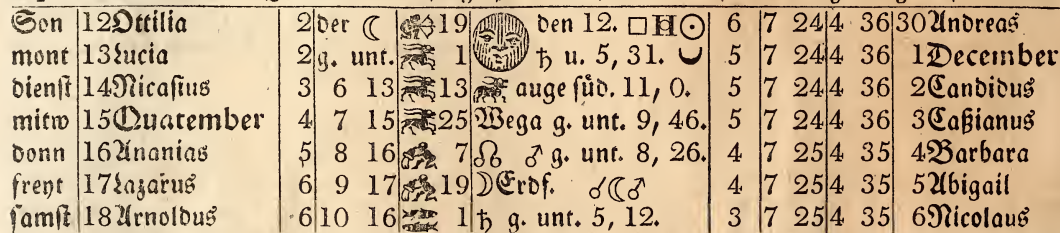 Son 12 Ottilia 2 der ☾ 19 den 12. □ ♅ ☉ 6 7 24 4 36 30 Andreas
mont 13 Lucia 2 g. unt. 1 ♄ u. 5, 31. 5 7 24 4 36 1 December
dienst 14 Nicasius 3 6 13 13 auge süd. 11, 0. 5 7 24 4 36 2 Candidus
mitw 15 Quatember 4 7 15 25 Wega g. unt. 9, 46. 5 7 24 4 36 3 Caßianus
donn 16 Ananias 5 8 16 7 ☊ ♂ g. unt. 8, 26. 4 7 25 4 35 4 Barbara
freyt 17 Lazarus 6 9 17 19 ☽ Erdf. ☌ ☾ ♂ 4 7 25 4 35 5 Abigail
samst 18 Arnoldus 6 10 16 1 ♄ g. unt. 5, 12. 3 7 25 4 35 6 Nicolaus